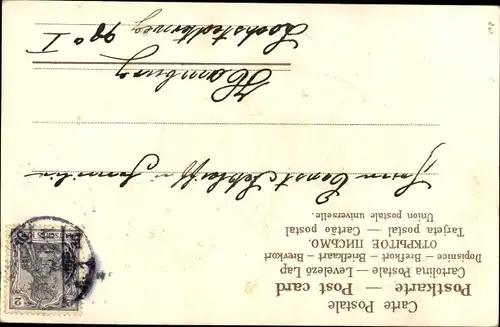 Carte Postale
Postkarte — Post card
Cartolina Postale — Levelező Lap
Dopisnice — Brefkort — Briefkaart — Brevkort
ОТКРЫТОЕ ПИСЬМО.
Tarjeta postal — Cartão postal
Union postale universelle.
Ernst u Familie
Hamburg
Lokstedterweg 98a I
2